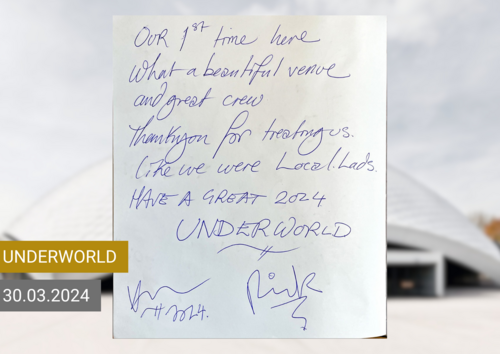 OUR 1st time here
What a beautiful venue
and great crew
Thankyou for treating us.
Like we were Local. Lads.
HAVE A GREAT 2024
UNDERWORLD
UNDERWORLD
30.03.2024
2024.
Rick